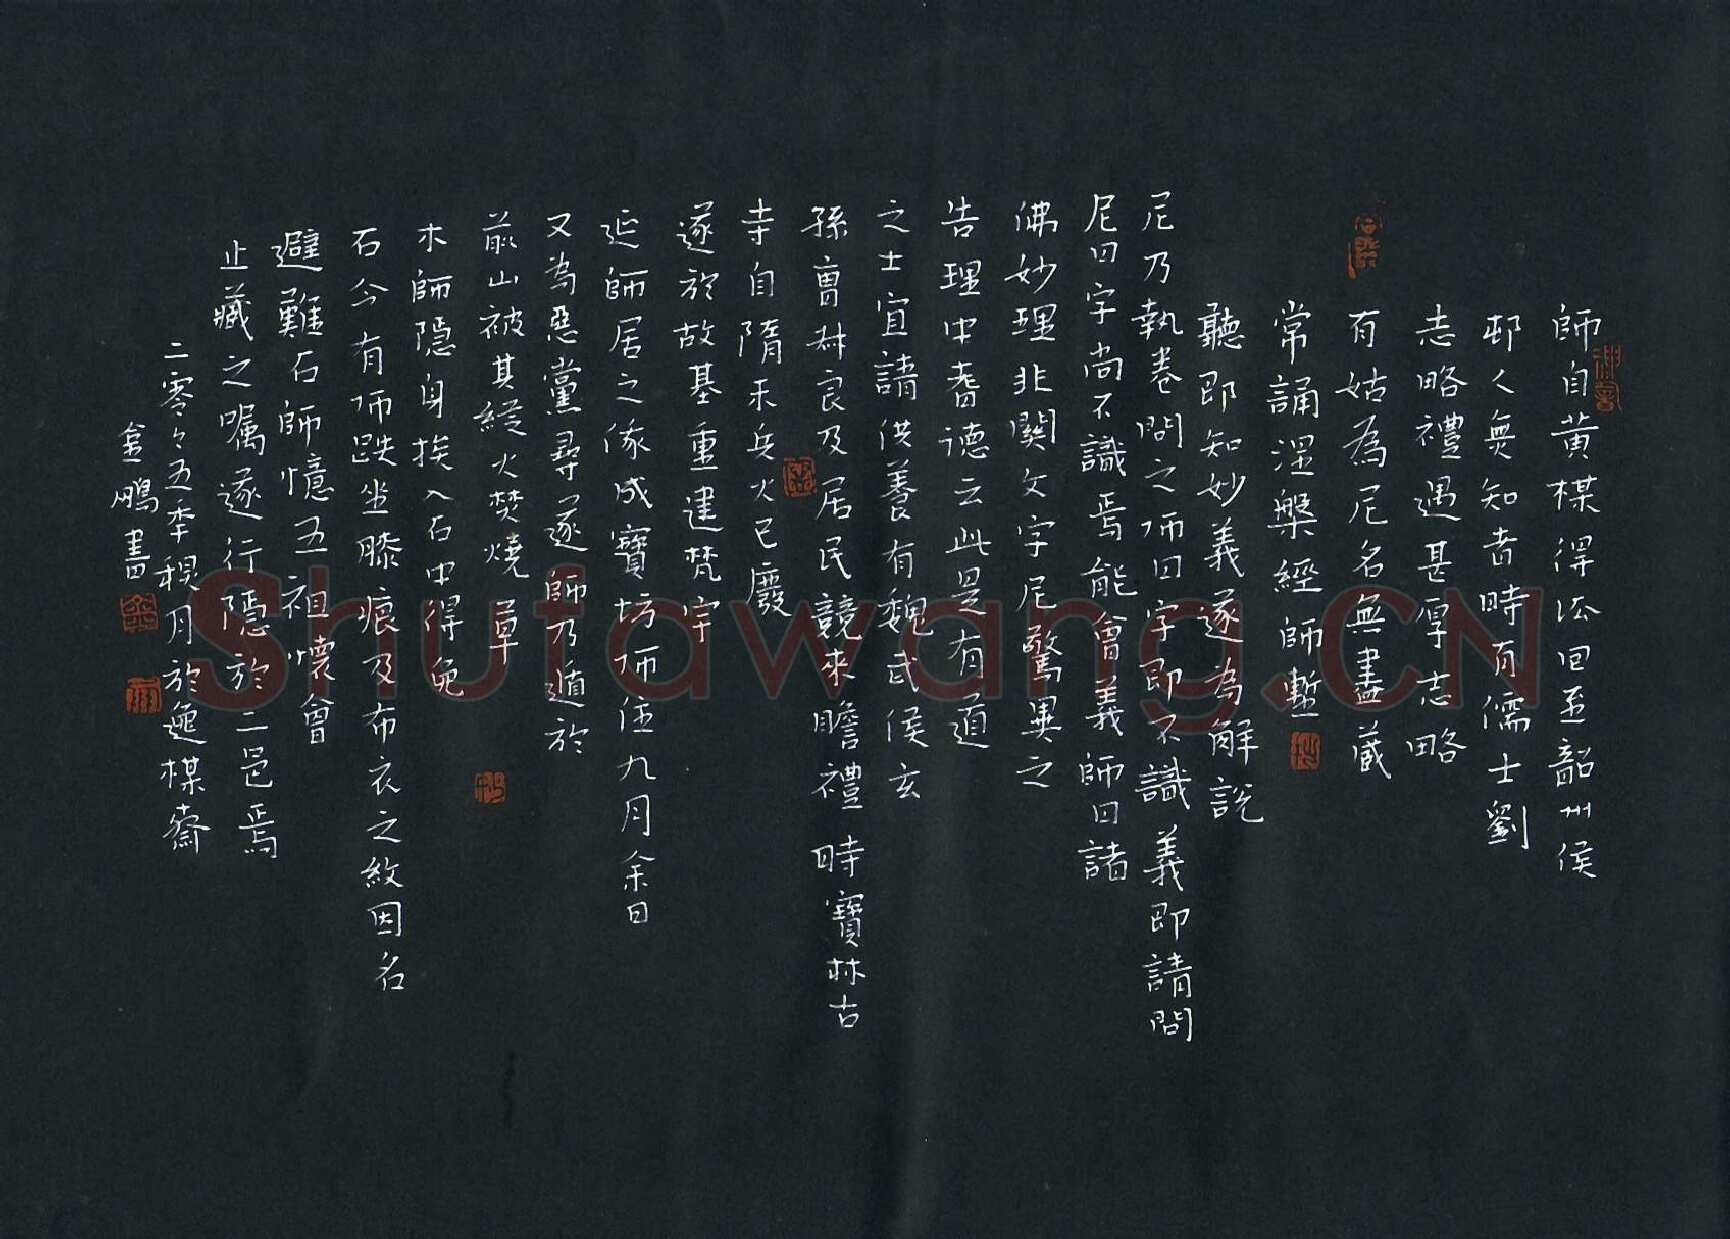 師自黄楳得法回至韶州侯
邨人無知者時有儒士劉
志略禮遇甚厚志略
有姑為尼名無盡藏
常誦涅槃經師蹔
聽即知妙義遂為解說
尼乃執卷問之师曰字即不識義即請問
尼曰字尚不識焉能會義師曰諸
佛妙理非關文字尼驚異之
告理中耆德云此是有道
之士宜請供養有魏武侯玄
孫曹叔良及居民競來瞻禮時寶林古
寺自隋末兵火已廢
遂於故基重建梵宇
延師居之俄成寶坊师住九月余日
又為惡黨尋逐師乃遁於
前山被其縱火焚燒草
木師隱身挨入石中得免
石今有师趺坐膝痕及布衣之紋因名
避難石師憶五祖懷會
止藏之囑遂行隱於二邑焉
二零零五季秋月於逸楳齋
金鵬書
Shufawang.CN